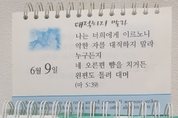 나는 너희에게 이르노니
악한 자를 대적하지 말라
누구든지
6월 9일
네 오른편 뺨을 치거든
왼편도 돌려 대며
(마 5:39)